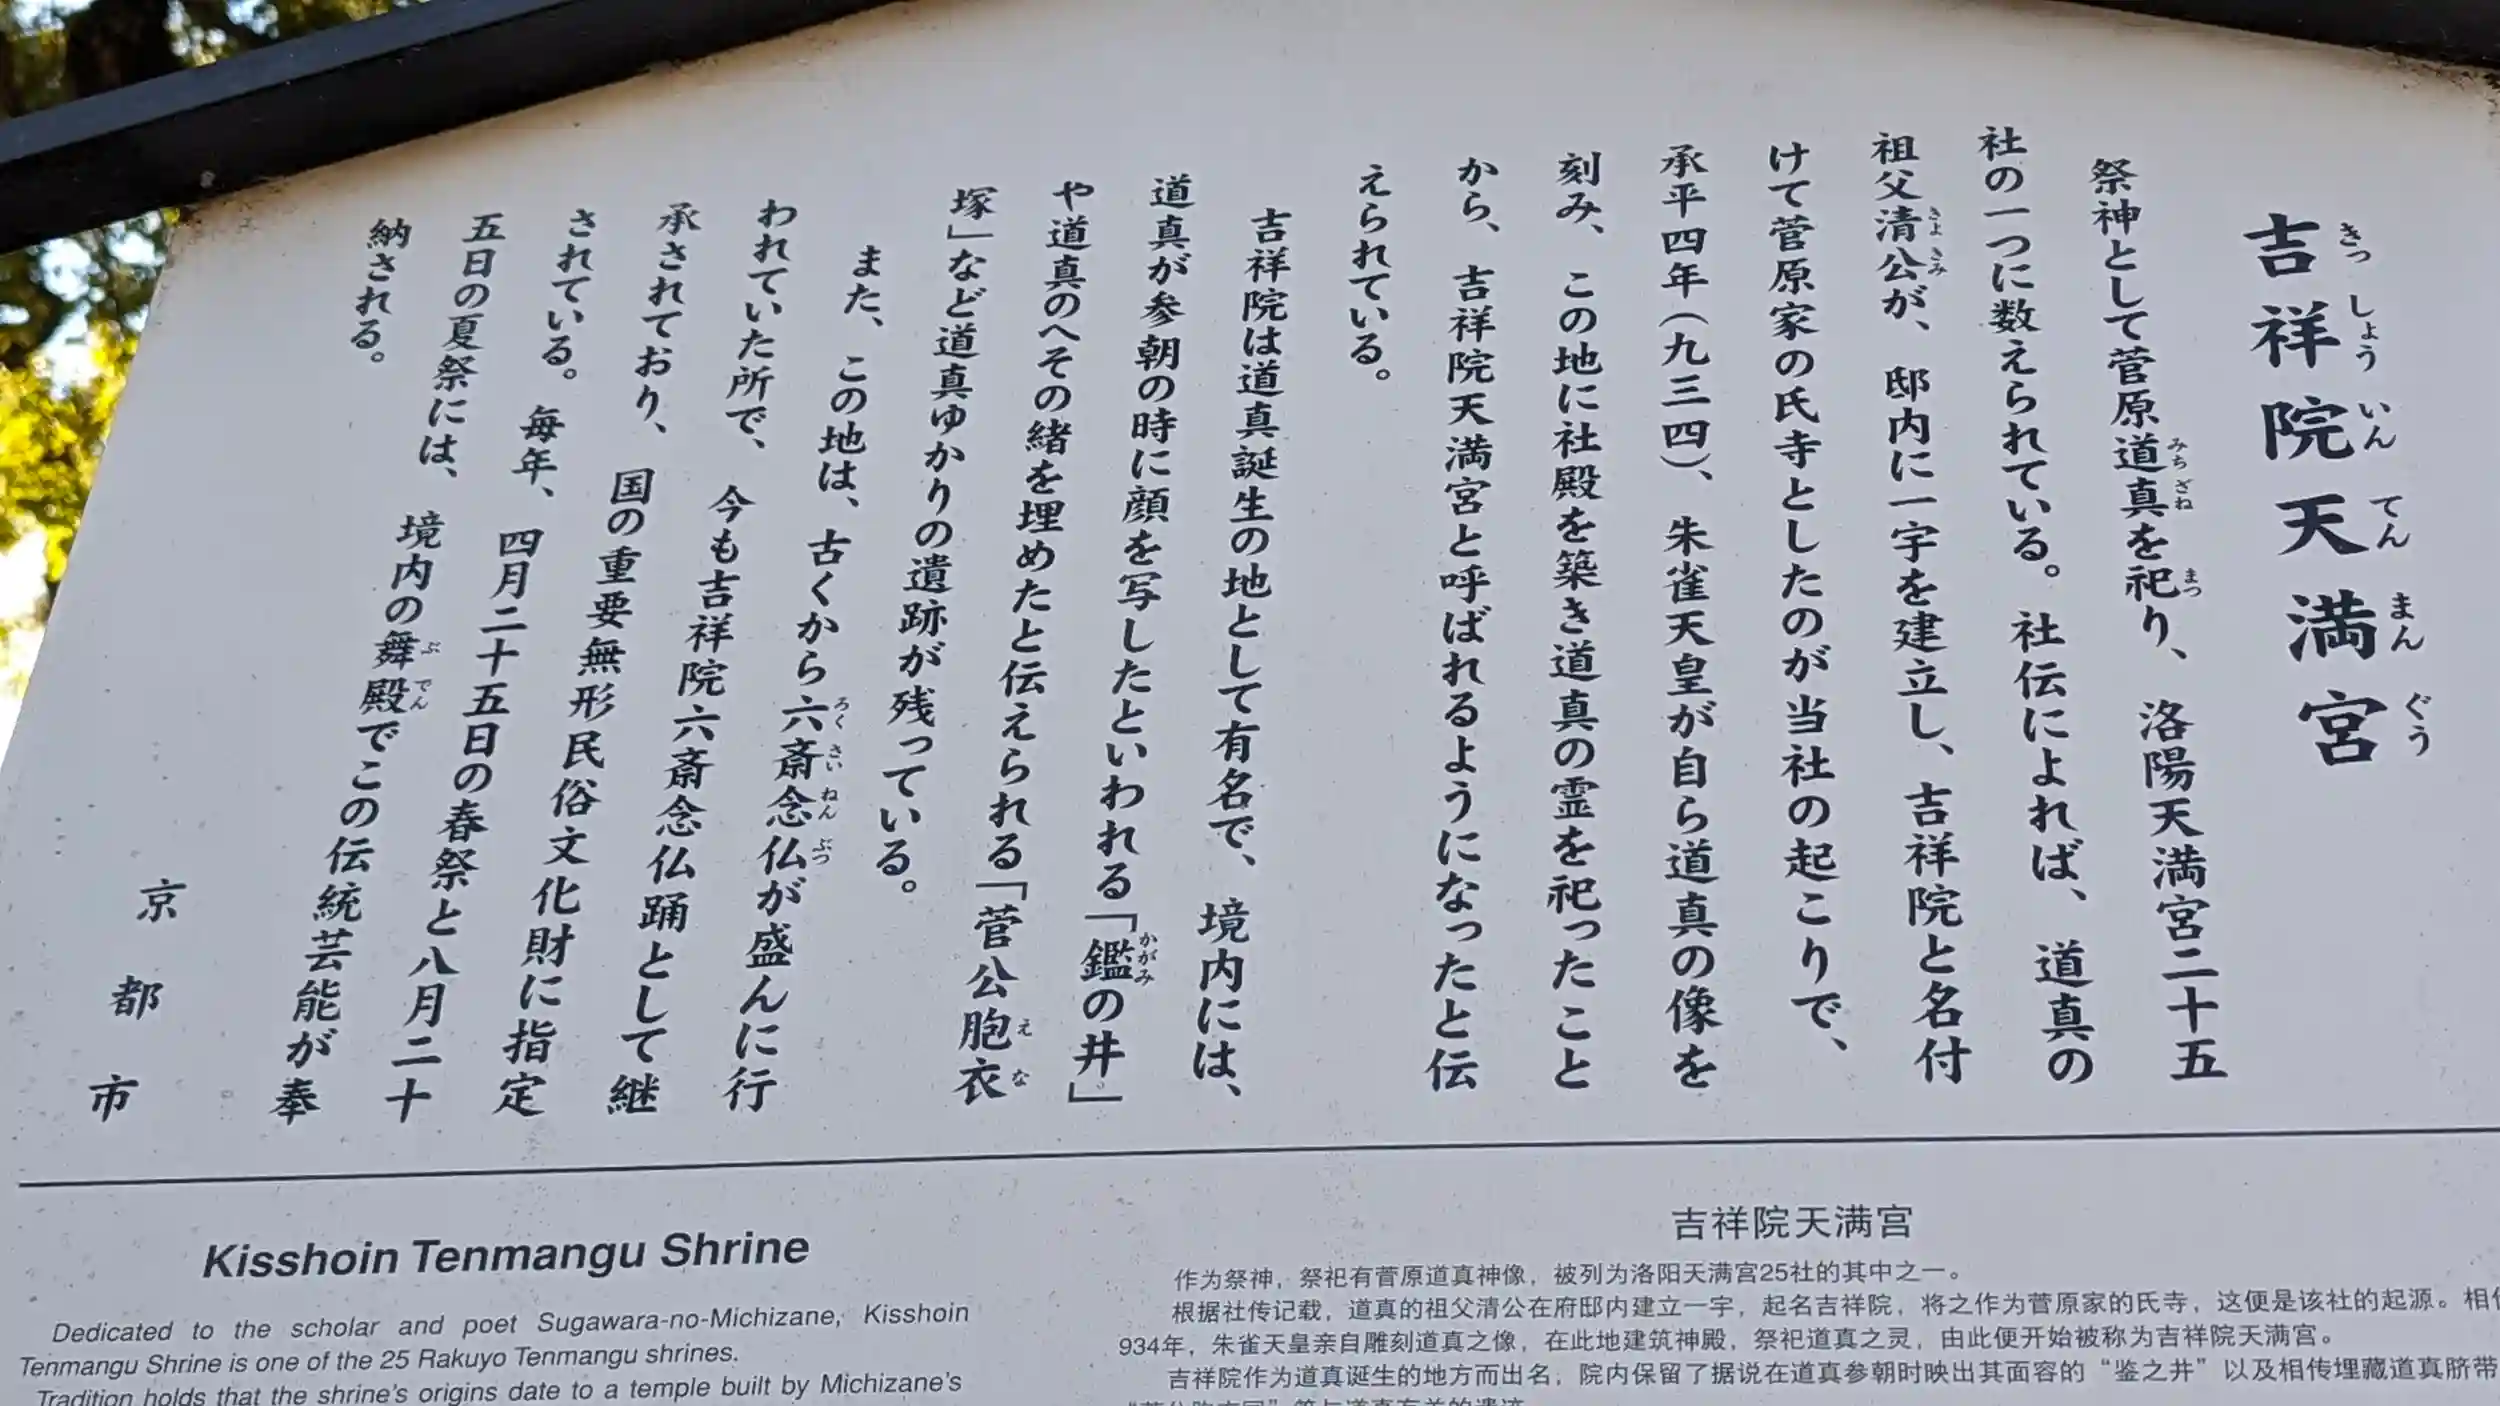 吉祥院天満宮
きっしょういんてんまんぐう
祭神として菅原道真を祀り、洛陽天満宮二十五
みちざね
まつ
社の一つに数えられている。社伝によれば、道真の
祖父清公が、邸内に一宇を建立し、吉祥院と名付
きよきみ
けて菅原家の氏寺としたのが当社の起こりで、
承平四年（九三四）、朱雀天皇が自ら道真の像を
刻み、この地に社殿を築き道真の霊を祀ったこと
から、吉祥院天満宮と呼ばれるようになったと伝
えられている。
吉祥院は道真誕生の地として有名で、境内には、
道真が参朝の時に顔を写したといわれる「鑑の井」
かがみ
や道真のへその緒を埋めたと伝えられる「菅公胞衣
えな
塚」など道真ゆかりの遺跡が残っている。
また、この地は、古くから六斎念仏が盛んに行
ろくさいねんぶつ
われていた所で、今も吉祥院六斎念仏踊として継
承されており、国の重要無形民俗文化財に指定
されている。毎年、四月二十五日の春祭と八月二十
五日の夏祭には、境内の舞殿でこの伝統芸能が奉
ぶでん
納される。
京都市
Kisshoin Tenmangu Shrine
Dedicated to the scholar and poet Sugawara-no-Michizane, Kisshoin
Tenmangu Shrine is one of the 25 Rakuyo Tenmangu shrines.
Tradition holds that the shrine's origins date to a temple built by Michizane's
吉祥院天满宫
作为祭神，祭祀有菅原道真神像，被列为洛阳天满宫25社的其中之一。
根据社传记载，道真的祖父清公在府邸内建立一宇，起名吉祥院，将之作为菅原家的氏寺，这便是该社的起源。相传
934年，朱雀天皇亲自雕刻道真之像，在此地建筑神殿，祭祀道真之灵，由此便开始被称为吉祥院天满宫。
吉祥院作为道真诞生的地方而出名，院内保留了据说在道真参朝时映出其面容的“鉴之井”以及相传埋藏道真脐带